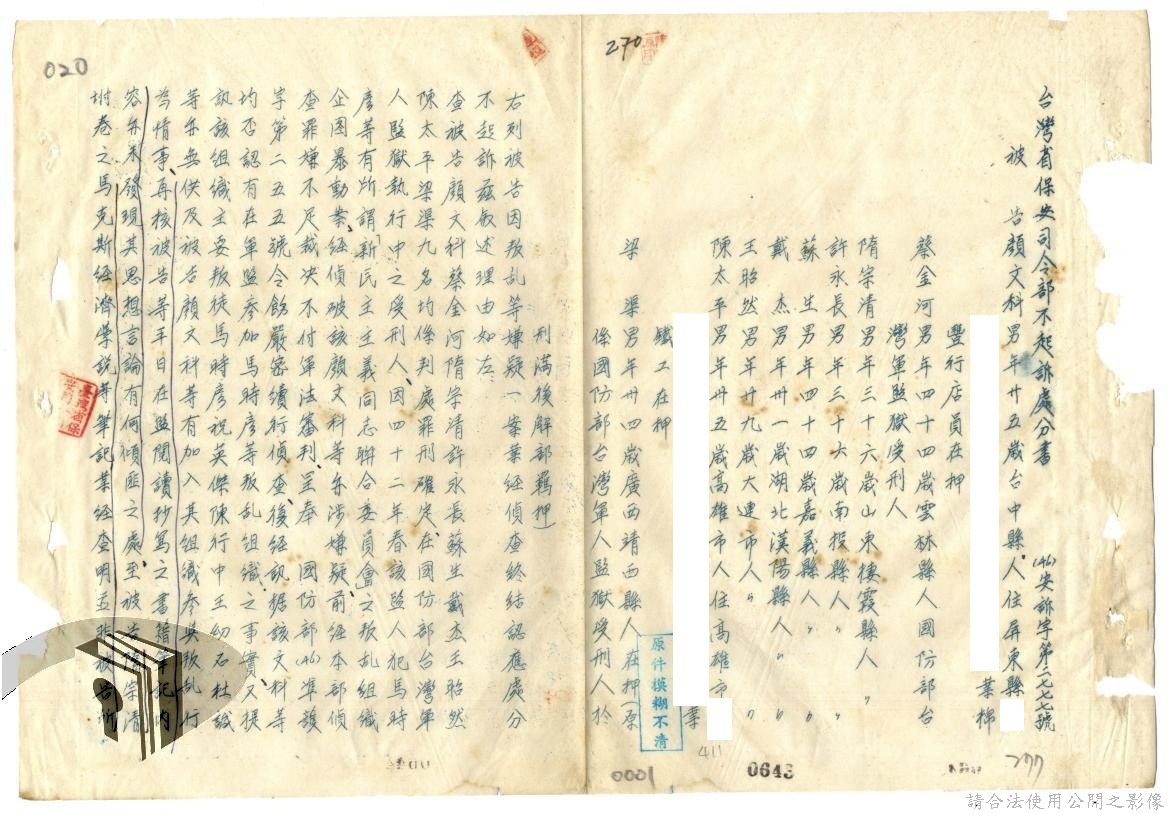 台灣省保安司令部不起訴處分書
(46)安訴字第二七七號
被告顏文科男年廿五歲台中縣人住屏東縣
業棉
豐行店員在押
蔡金河男年四十四歲雲林縣人國防部台
灣軍監獄受刑人
隋宗清男年三十六歲山東棲霞縣人〃
許永長男年三十六歲南投縣人〃
蘇生男年四十四歲嘉義縣人〃〃
戴杰男年卅一歲湖北漢陽縣人〃〃
王昭然男年廿九歲大連市人〃〃
陳太平男年廿五歲高雄市人住高雄市
業
鐵工在押
梁渠男年卅四歲廣西靖西縣人在押(原
係國防部台灣軍人監獄受刑人於
刑滿後解部羈押)
右列被告因叛乱等嫌疑一案業經偵查終結認應處分
不起訴茲敘述理由如左
查被告顏文科蔡金河隋宗清許永長蘇生戴杰王昭然
陳太平梁渠九名均係判處罪刑確定在國防部台灣軍
人監獄執行中之受刑人因四十二年春該監人犯馬時
彥等有所謂「新民主主義同志聯合委員會」之叛乱組織
企圖暴動案經偵破該顏文科等亦涉嫌疑前經本部偵
查罪嫌不足裁決不付軍法審判呈奉 國防部(46)準護
字第二五五號令飭嚴密續行偵查後經訊据該文科等
均否認有在軍監參加馬時彥等叛乱組織之事實又提
訊該組織主要叛徒馬時彥祝英傑陳行中王幼石杜誠
等亦無供及被告顏文科等有加入其組織參與叛乱行
為情事再核被告等平日在監閱讀抄寫之書籍筆記內
容亦未發現其思想言論有何傾匪之處至被告隋宗清
坿卷之馬克斯經濟學說等筆記業經查明並非被告所
020
270
原件模糊不清
411
0001
0643
277
請合法使用公開之影像